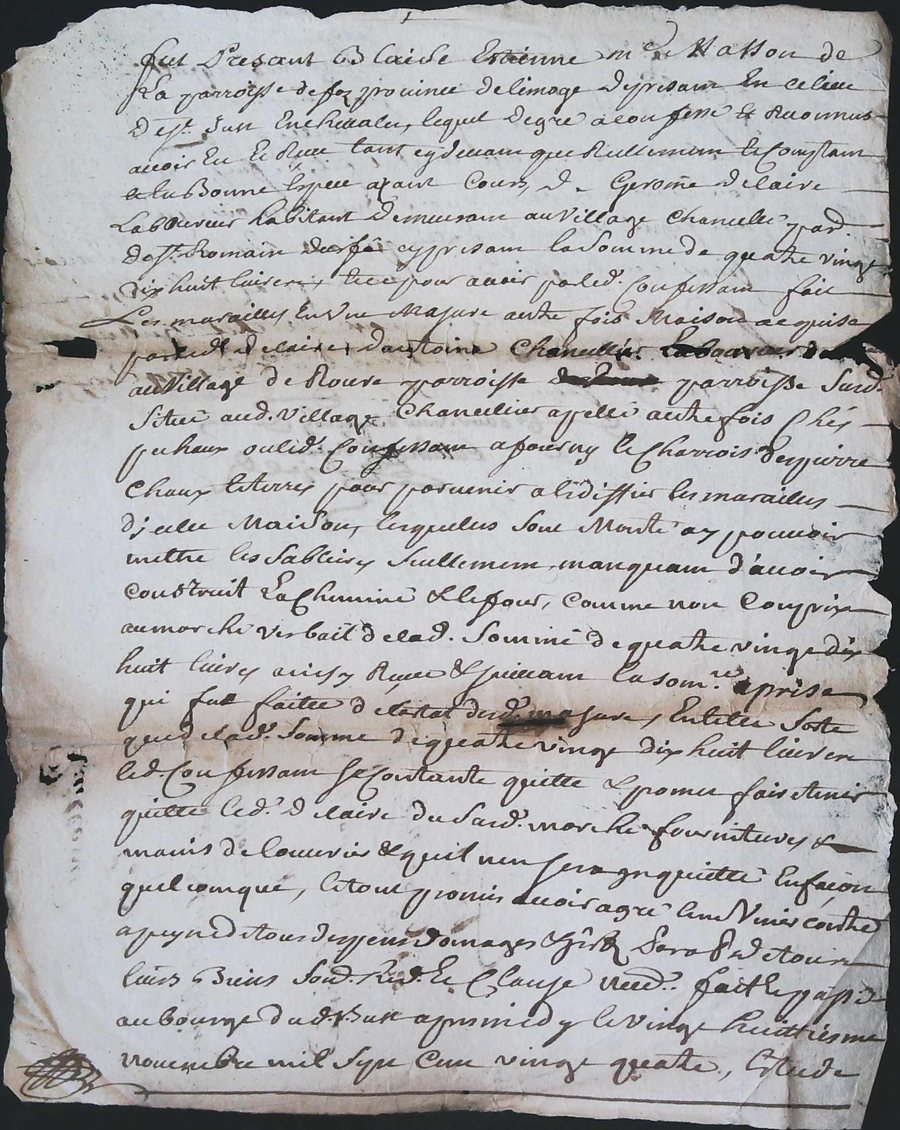 fut Presant Blaise Estienne mre Masson de
La parroisse de fez province de limoge de presant En ce lieu
de st Just En chevalet, lequel de gre a confesse & Reconnus
avoir Eu & Receu tant cy devant que Reellement & Comptant
& En Bonne Espece ayant Cours, de Gerosme delaire
Laboureur habitant demeurant au village Chancelle par
de st Romain durfé cy presant la somme de quatre vingt
dix huit livres, & ce pour avoir par led. Confessant fait
Les murailles En une Masure autre fois Maison acquise
par led. delaire, dantoine Chancellier Laboureur
au village de Roure parroisse parroisse Susd.
Situé aud. village Chancellier apellé autre fois Chés
puhaux ou led. Confessant a fourny le Charrois de pierre
Chaux & terre pour parvenir a lediffier les murailles
dicelle Maison, lesquelles sont Monté a y pouvoir
mettre les Sablieres Seullement, manquant d'avoir
construit La Cheminé & le four, comme non Compris
au marché verbail de lad. Sommé de quatre vingt dix
huit livres aussy Receu & suivant la som.re aprise
qui fut faitte de lestat de lad. masure, En telle Sorte
que de lad. Somme de quatre vingt dix huit livres
led. Confessant se contante quitte & promet faire tenir
quitte led. delaire du Susd. marché fournitures &
mains de louvrier & quil nen sera ynquietté En façon
quelconque, le tout promis avoir agré & ne venir contre
a peyne de tous despens domages & Sera de tous
leurs Biens Soub. Red. & Clause neced. fait & passé
au bourg dud st Just apres midy le vingt huittiesme
novembre mil sept cent vingt quatre, led.